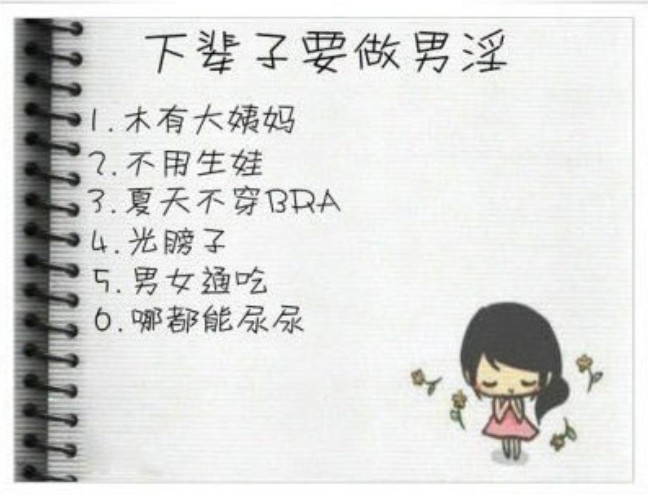 下辈子要做男淫
1.木有大姨妈
2.不用生娃
3.夏天不穿BRA
4.光膀子
5.男女通吃
6.哪都能尿尿